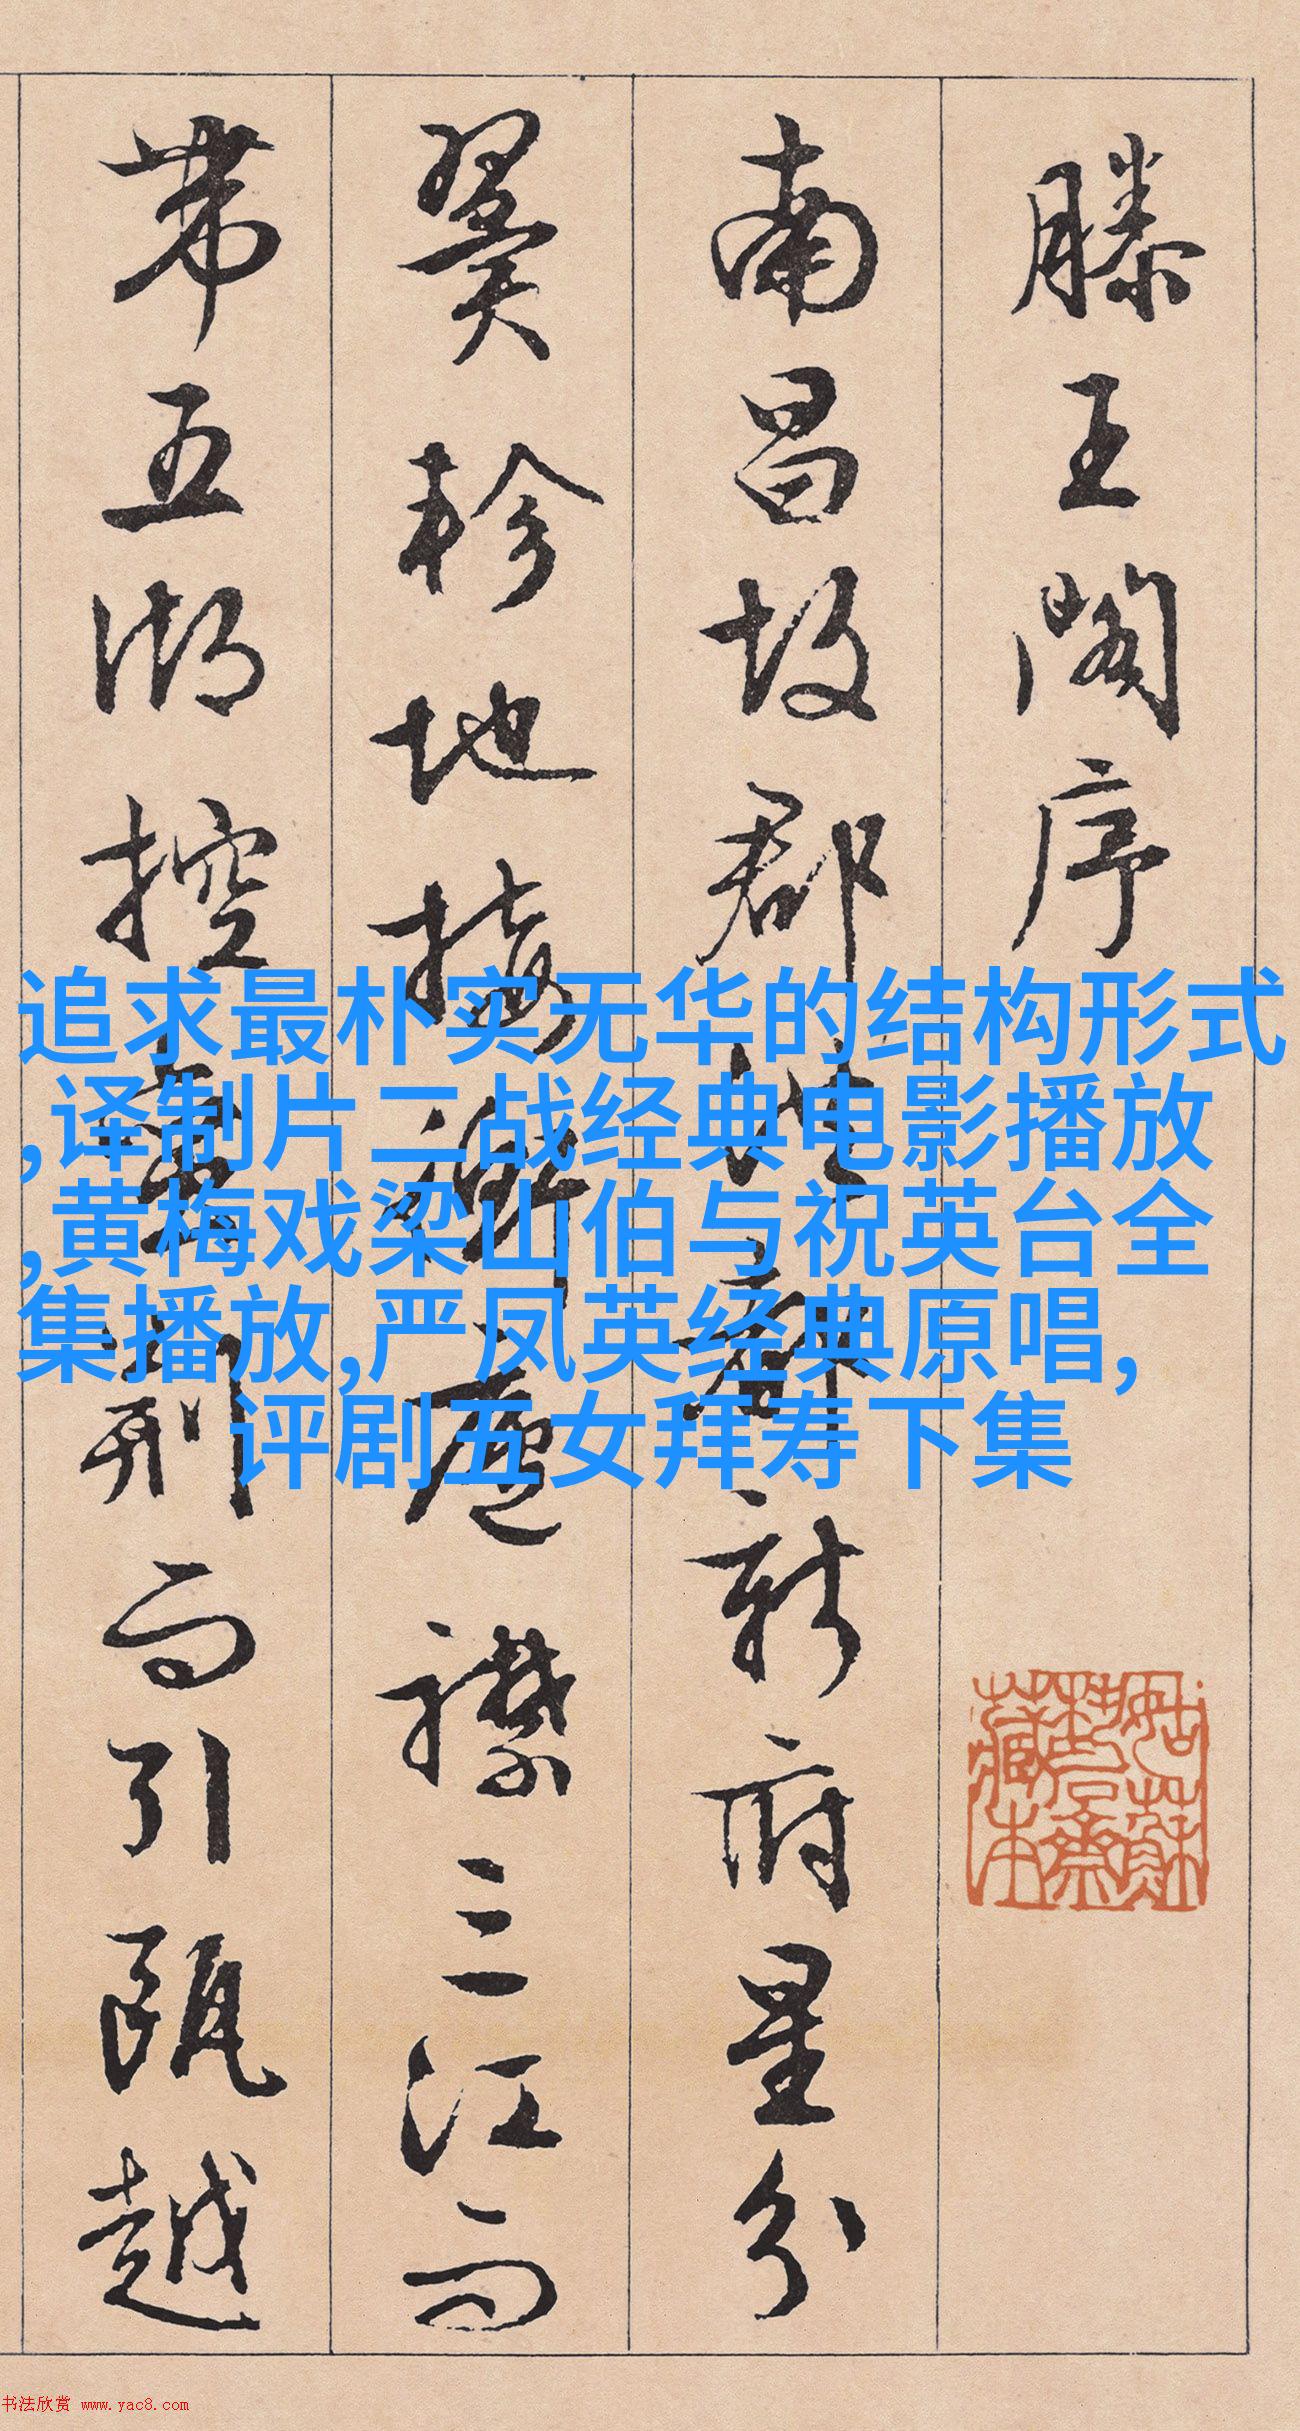 滕王閣序
南昌故郡洪都新府星分
翼軫地接衡廬襟三江而
帶五湖控蠻荊而引甌越
追求最朴实无华的结构形式
,译制片二战经典电影播放
,黄梅戏梁山伯与祝英台全
集播放,严凤英经典原唱,
评剧五女拜寿下集
姑蘇
齋
藏本
书法欣赏 www.yac8.com